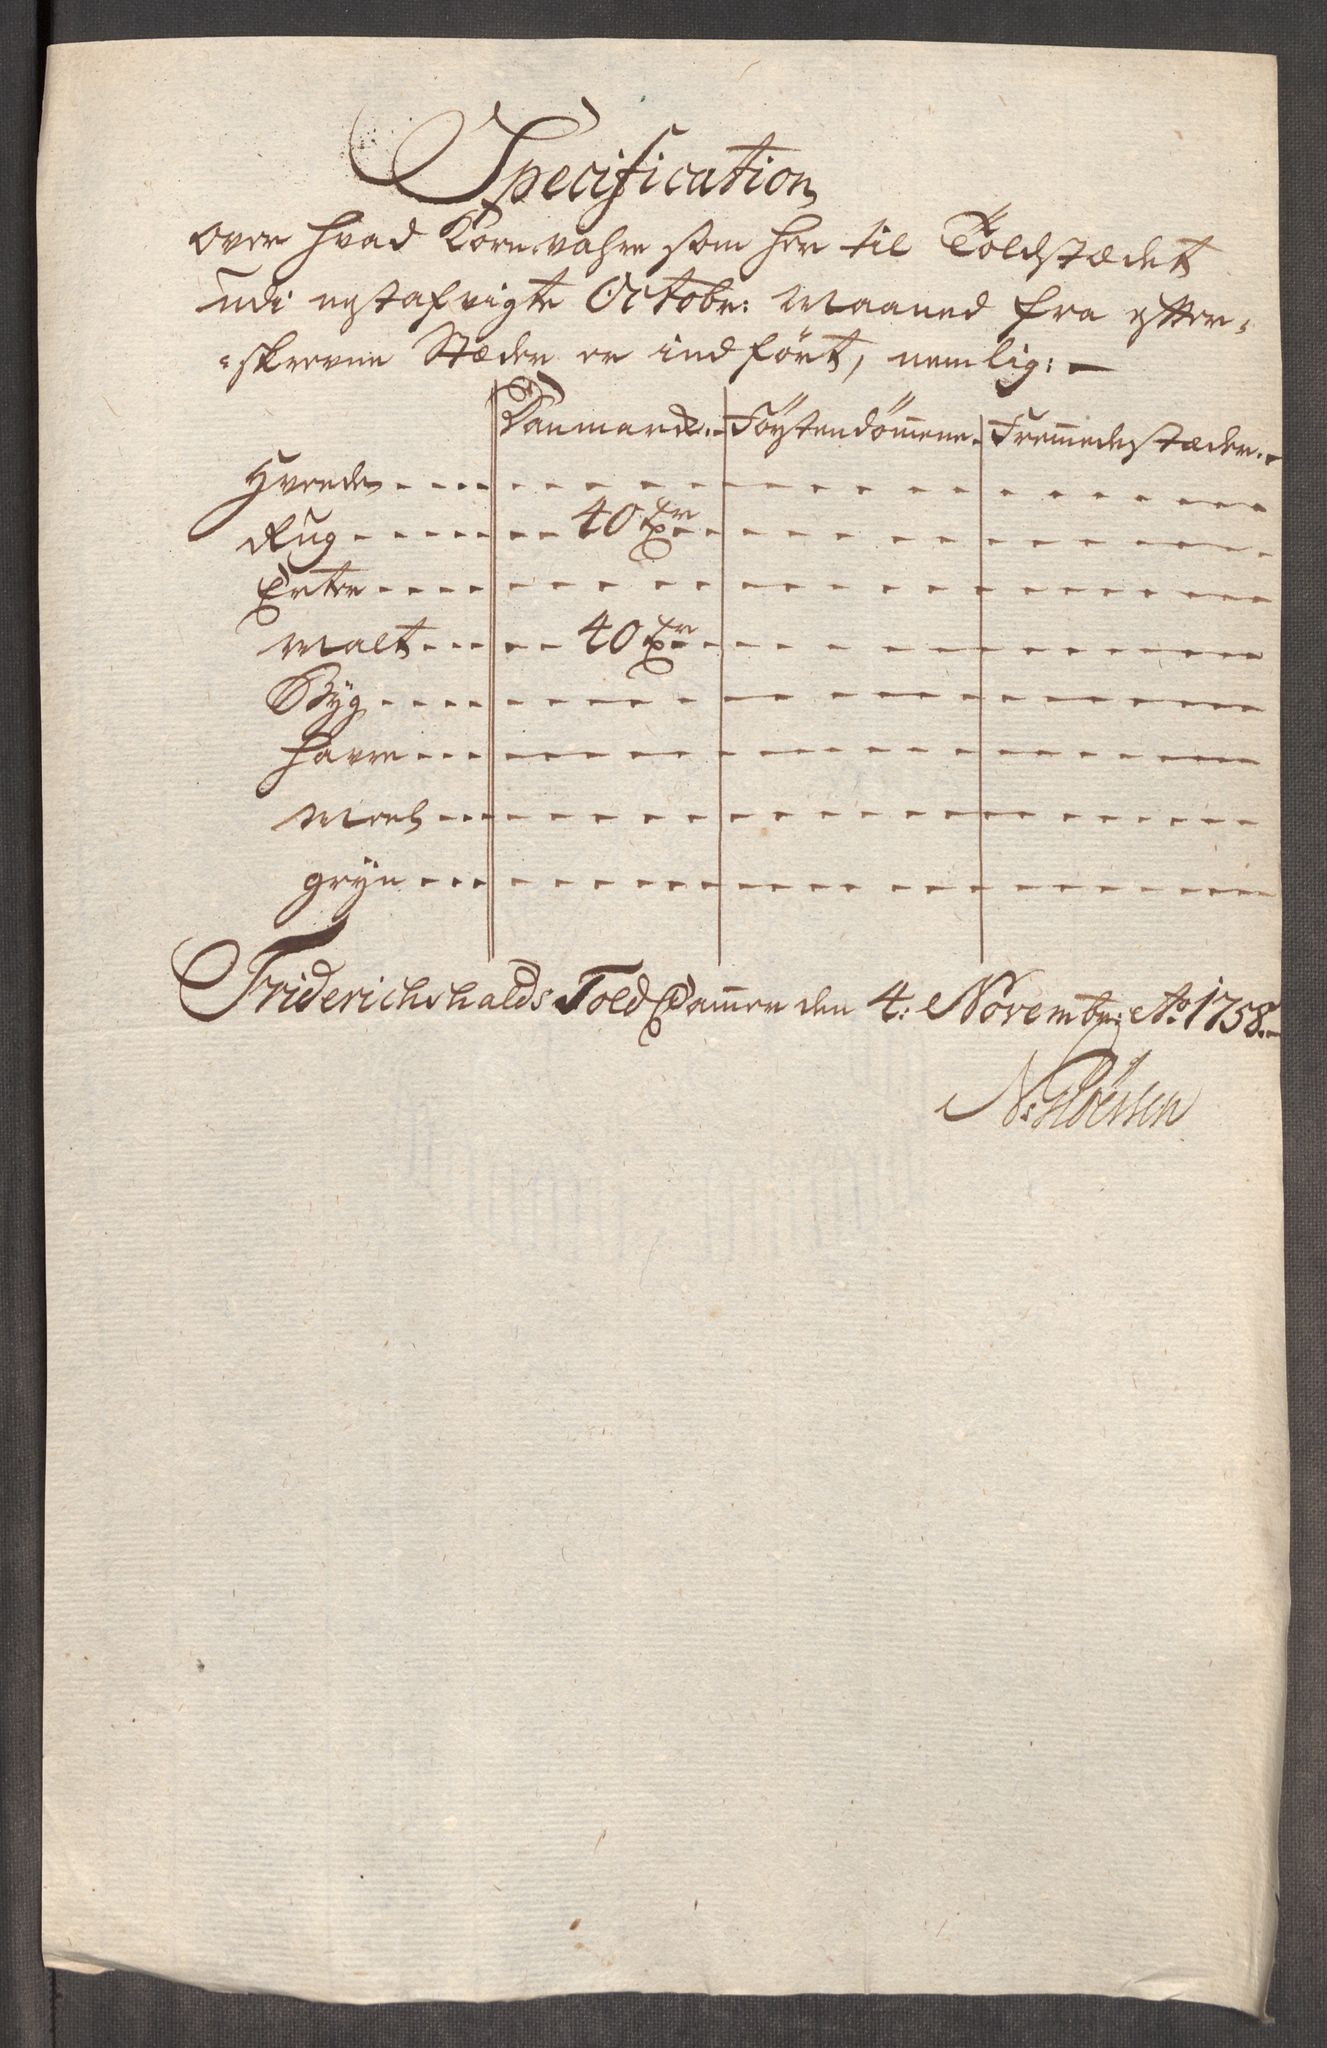 Specification
over hvad Kornvahre som her til Toldstædet
udi nestafvigte Octobr: Maaned fra efter-
-skrevne Stæder er indført, nemlig: —
Danmark. Førstendømmene. Fremmedestæder.
Hvede
Rug 40 Tr
Erter
Malt 40 Tr
Byg
Havre
Meel
gryn
Friderichshalds Told Cammer den 4: Novembr: Ao. 1758.